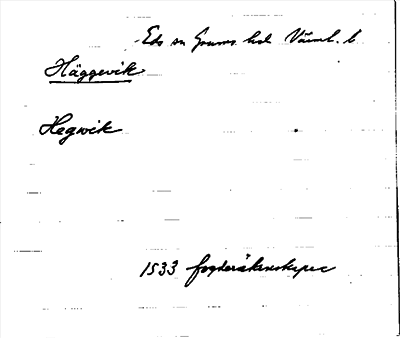 Eds sn Grums hd Värml. l.
Häggevik
Hegwik
1533 fogderäkenskaper